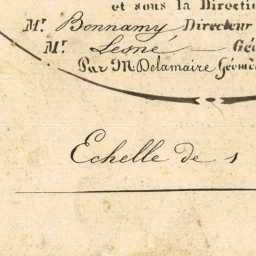 et sous la Directi
Mr. Bonnamy Directeur
Mr. Lesné Gé
Par M. Delamaire Géomè
Echelle de 1